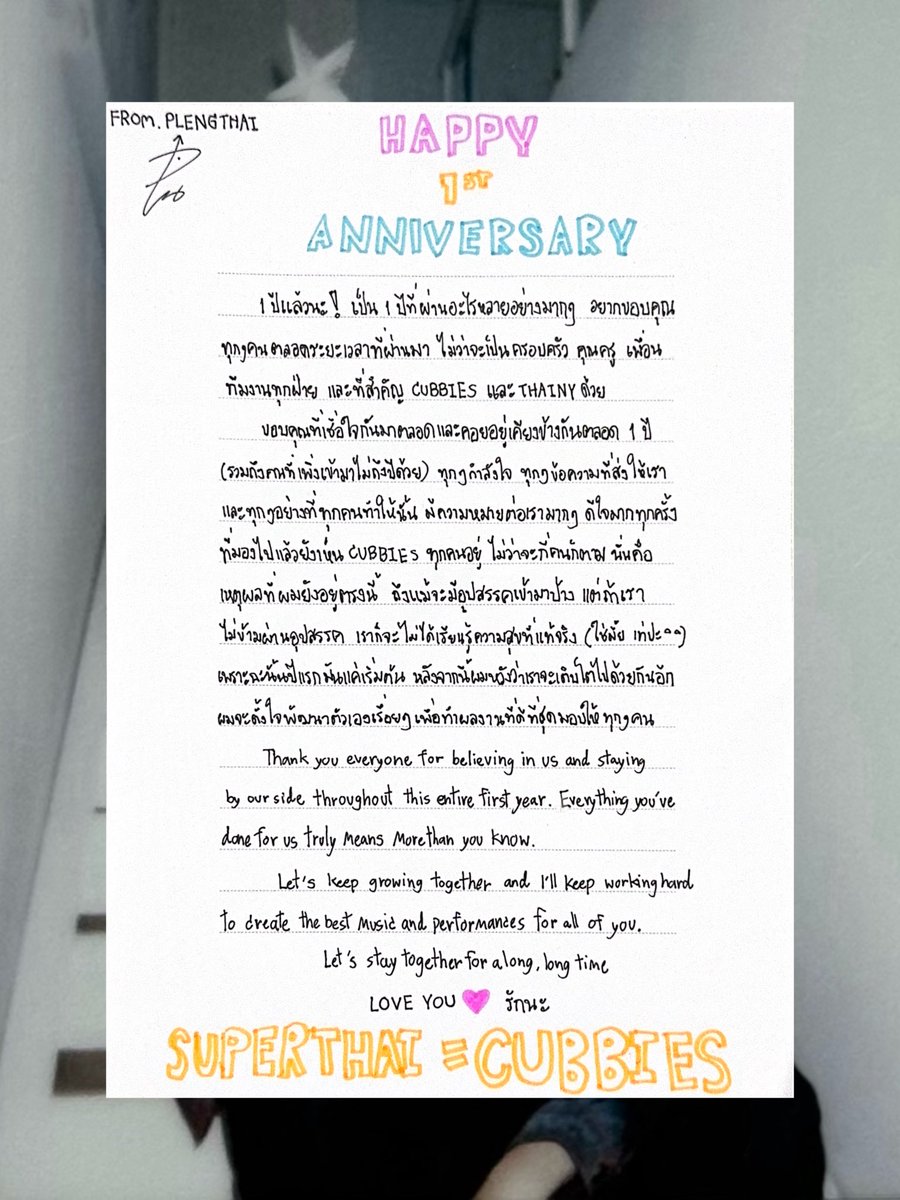 FROM. PLENGTHAI
HAPPY
1ST
ANNIVERSARY
1 ปีแล้วนะ! เป็น 1 ปีที่ผ่านอะไรหลายอย่างมากๆ อยากขอบคุณ
ทุกๆคนตลอดระยะเวลาที่ผ่านมา ไม่ว่าจะเป็นครอบครัว คุณครู เพื่อน
ทีมงานทุกฝ่าย และที่สำคัญ CUBBIES และ THAINY ด้วย
ขอบคุณที่เชื่อใจกันมาตลอดและคอยอยู่เคียงข้างกันตลอด 1 ปี
(รวมถึงคนที่เพิ่งเข้ามาไม่ถึงปีด้วย) ทุกๆกำลังใจ ทุกๆข้อความที่ส่งให้เรา
และทุกๆอย่างที่ทุกคนทำให้นั้น มีความหมายต่อเรามากๆ ดีใจมากทุกครั้ง
ที่มองไปแล้วยังเห็น CUBBIES ทุกคนอยู่ ไม่ว่าจะกี่คนก็ตาม นั่นคือ
เหตุผลที่ผมยังอยู่ตรงนี้ ถึงแม้จะมีอุปสรรคเข้ามาบ้าง แต่ถ้าเรา
ไม่ข้ามผ่านอุปสรรค เราก็จะไม่ได้เรียนรู้ความสุขที่แท้จริง (ใช่มั้ย เท่ปะ^^)
เพราะฉะนั้นปีแรกมันแค่เริ่มต้น หลังจากนี้ผมหวังว่าเราจะเติบโตไปด้วยกันอีก
ผมจะตั้งใจพัฒนาตัวเองเรื่อยๆ เพื่อทำผลงานที่ดีที่สุดมอบให้ทุกๆคน
Thank you everyone for believing in us and staying
by our side throughout this entire first year. Everything you've
done for us truly means more than you know.
Let's keep growing together and I'll keep working hard
to create the best music and performances for all of you.
Let's stay together for a long, long time
LOVE YOU รักนะ
SUPERTHAI = CUBBIES